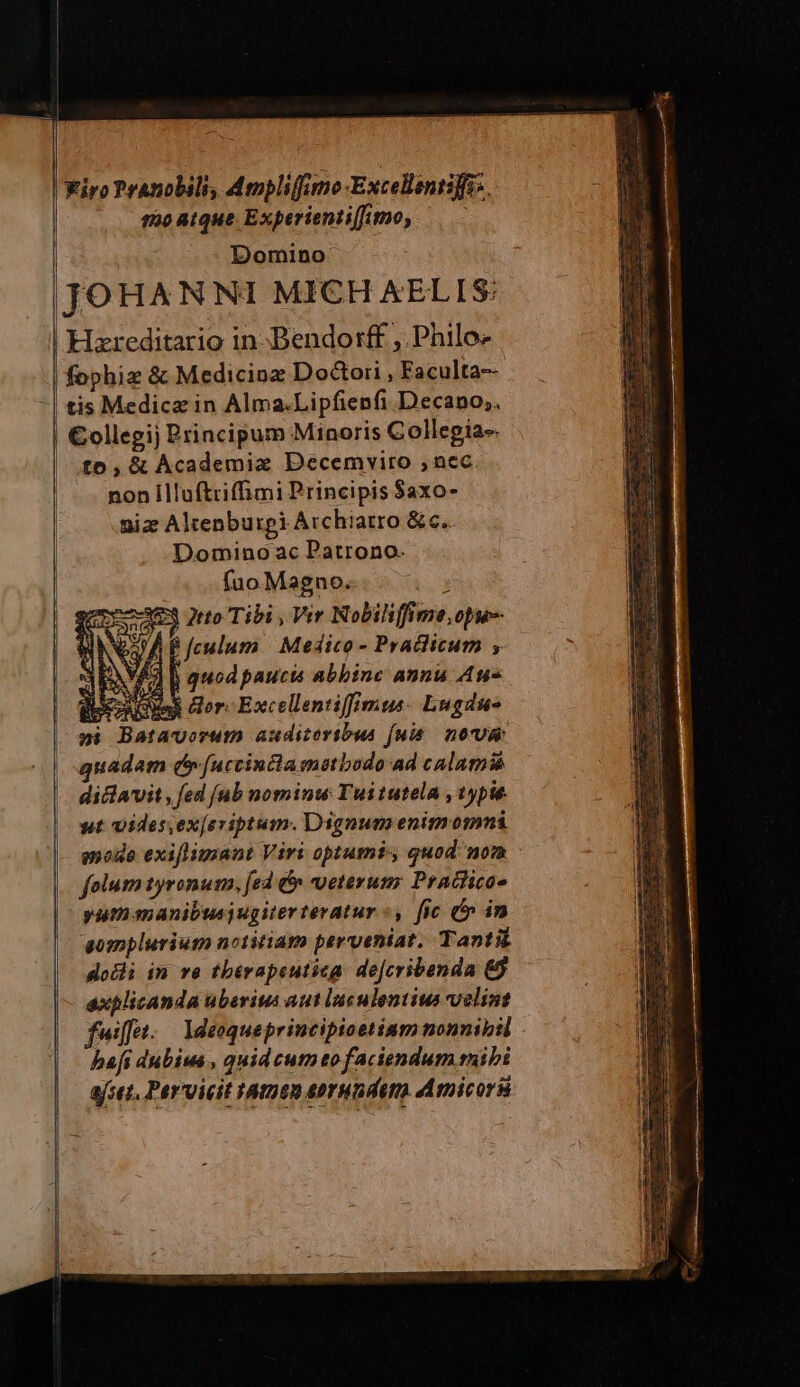 Viro Prænobili, Ampliſſimo Excellentiſſi-
mo atque Experientiſſimo,
Domino
JOHANNI MICHAELIS:
Hæreditario in Bendorff, Philo-
ſophiæ & Medicinæ Doctori, Faculta-
tis Medicæ in Alma Lipſienſi Decano,
Collegij Principum Minoris Collegia-
to, & Academiæ Decemviro, nec
non Illuſtriſſimi Principis Saxo-
niæ Altenburgi Archiatro &c.
Domino ac Patrono
ſuo Magno.
Mitto Tibi, Vir Nobiliſſime, opu-
ſculum Medico-Practicum,
quod paucis abhinc annis Au-
ctor Excellentiſſimus Lugdu-
ni Batavorum auditoribus ſuis novâ
quadam & ſuccincta methodo ad calamũ
dictavit, ſed ſub nominis Tui tutela, typis
ut vides, exſcriptum. Dignum enim omni
modo exiſtimant Viri optumi, quod non
ſolum tyronum, ſed & veterum Practico-
rum manibus jugiter teratur, ſic & in
complurium notitiam perveniat. Tanti
docti in re therapeutica deſcribenda &
explicanda uberius aut luculentius velint
fuiſſet. Ideoque principio etiam nonnihil
hæſi dubius, quid cum eo faciendum mihi
eſset. Pervicit tamen eorundem Amicorũ